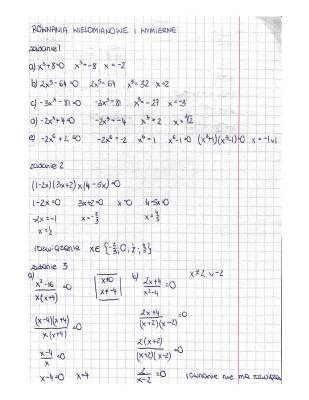 RÓWNANIA WIELOMIANOWE I WYMIERNE
zadanie 1
a) x³+8=0 x³=-8 x=-2
b) 2x⁵-64=0 2x⁵=64 x⁵=32 x=2
c) -3x³-81=0 -3x³=81 x³=-27 x=-3
d) -2x⁴+4=0 -2x⁴=-4 x⁴=2
e) -2x⁶+2=0 -2x⁶=-2 x⁶=1 x⁶-1=0 (x³+1)(x³-1)=0 x=-1∨1
zadanie 2
(1-2x)(3x+2)x(4-5x)=0
1-2x=0 3x+2=0 x=0 4-5x=0
x=-2/3
x=1/2
rozwiązanie x∈
zadanie 3
a) x²-16/x(x+4)=0 x≠0 x≠-4 b) 2x+4/x²-4=0 x≠2 ∨ -2
(x-4)(x+4)/x(x+4)=0 2x+4/(x+2)(x-2)=0
x-4/x=0 2(x+2)/(x+2)(x-2)=0
x-4=0 x=4 2/x-2=0 równanie nie ma